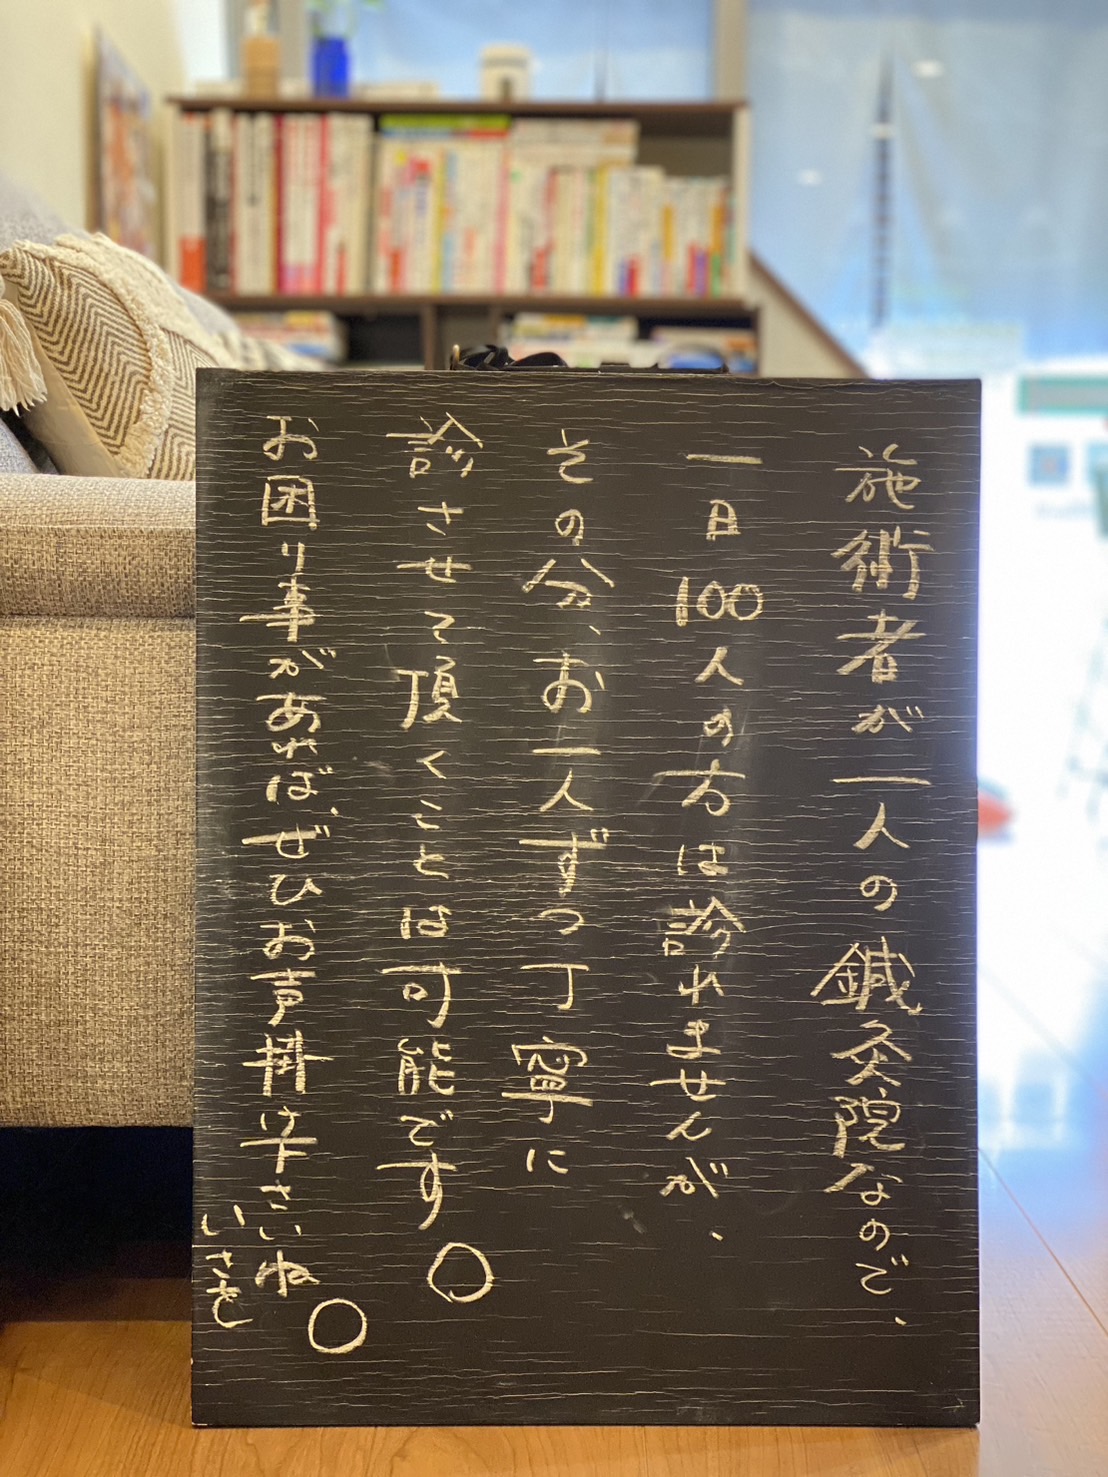 施術者が一人の鍼灸院なので、
一日100人の方は診れませんが、
その分、お一人ずつ丁寧に
診させて頂くことは可能です。
お困り事があれば、ぜひお声掛け下さいね。
いさき